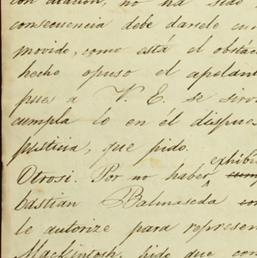 con atación, no ha sido
consecuencia debe darsele cu
movido, como está el obstác
hecho opuso el apelan
pues a V. E. se sirv
cumpla lo en él dispue
justicia, que pido.
Otrosi. Por no haber exhibi
bastian Balmaseda
le autorize para represen
Mackintosh, pide que con